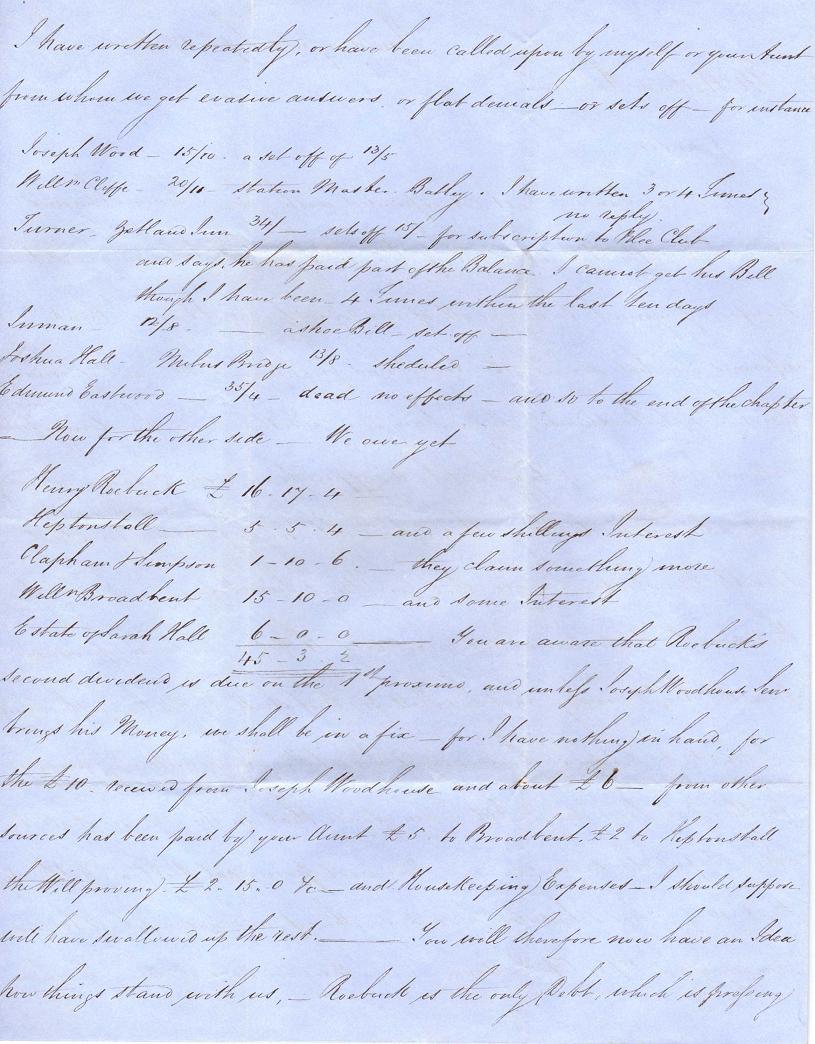 I have written repeatedly, or have been called upon by myself or your Aunt
from whom we get evasive answers, or flat denials — or sets off — for instance
Joseph Wood — 15/10. a set off of 13/5
Willm Cliffe — 20/11 — station Master Batley. I have written 3 or 4 Times
no reply.
Turner — Zetland Inn 34/ — sets off 15/- for subscription to Club
and says he has paid part of the Balance I cannot get his Bill
though I have been 4 Times within the last ten days
Inman — 12/8 — a shoe Bill — set off —
Joshua Hall — Milns Bridge 13/8 sheduled —
Edmund Eastwood — 35/4 — dead no effects — and so to the end of the chapter
— Now for the other side — We owe yet
Henry Roebuck £ 16 - 17 - 4 —
Heptonstall — 5 - 5 - 4 — and a few shillings Interest
Clapham & Simpson 1 - 10 - 6 — they claim something more
Willm Broadbent 15 - 10 - 0 — and some Interest
Estate of Sarah Hall 6 - 0 - 0 — You are aware that Roebuck's
45 - 3 2
second dividend is due on the 1st proximo, and unless Joseph Woodhouse Senr
brings his Money, we shall be in a fix — for I have nothing in hand, for
the £10 received from Joseph Woodhouse and about £6 — from other
sources has been paid by your Aunt £5 to Broadbent, £2 to Heptonstall
the Will proving £ 2 - 15 - 0 &c — and Housekeeping Expenses — I should suppose
will have swallowed up the rest. — You will therefore now have an Idea
how things stand with us, — Roebuck is the only Debt, which is pressing